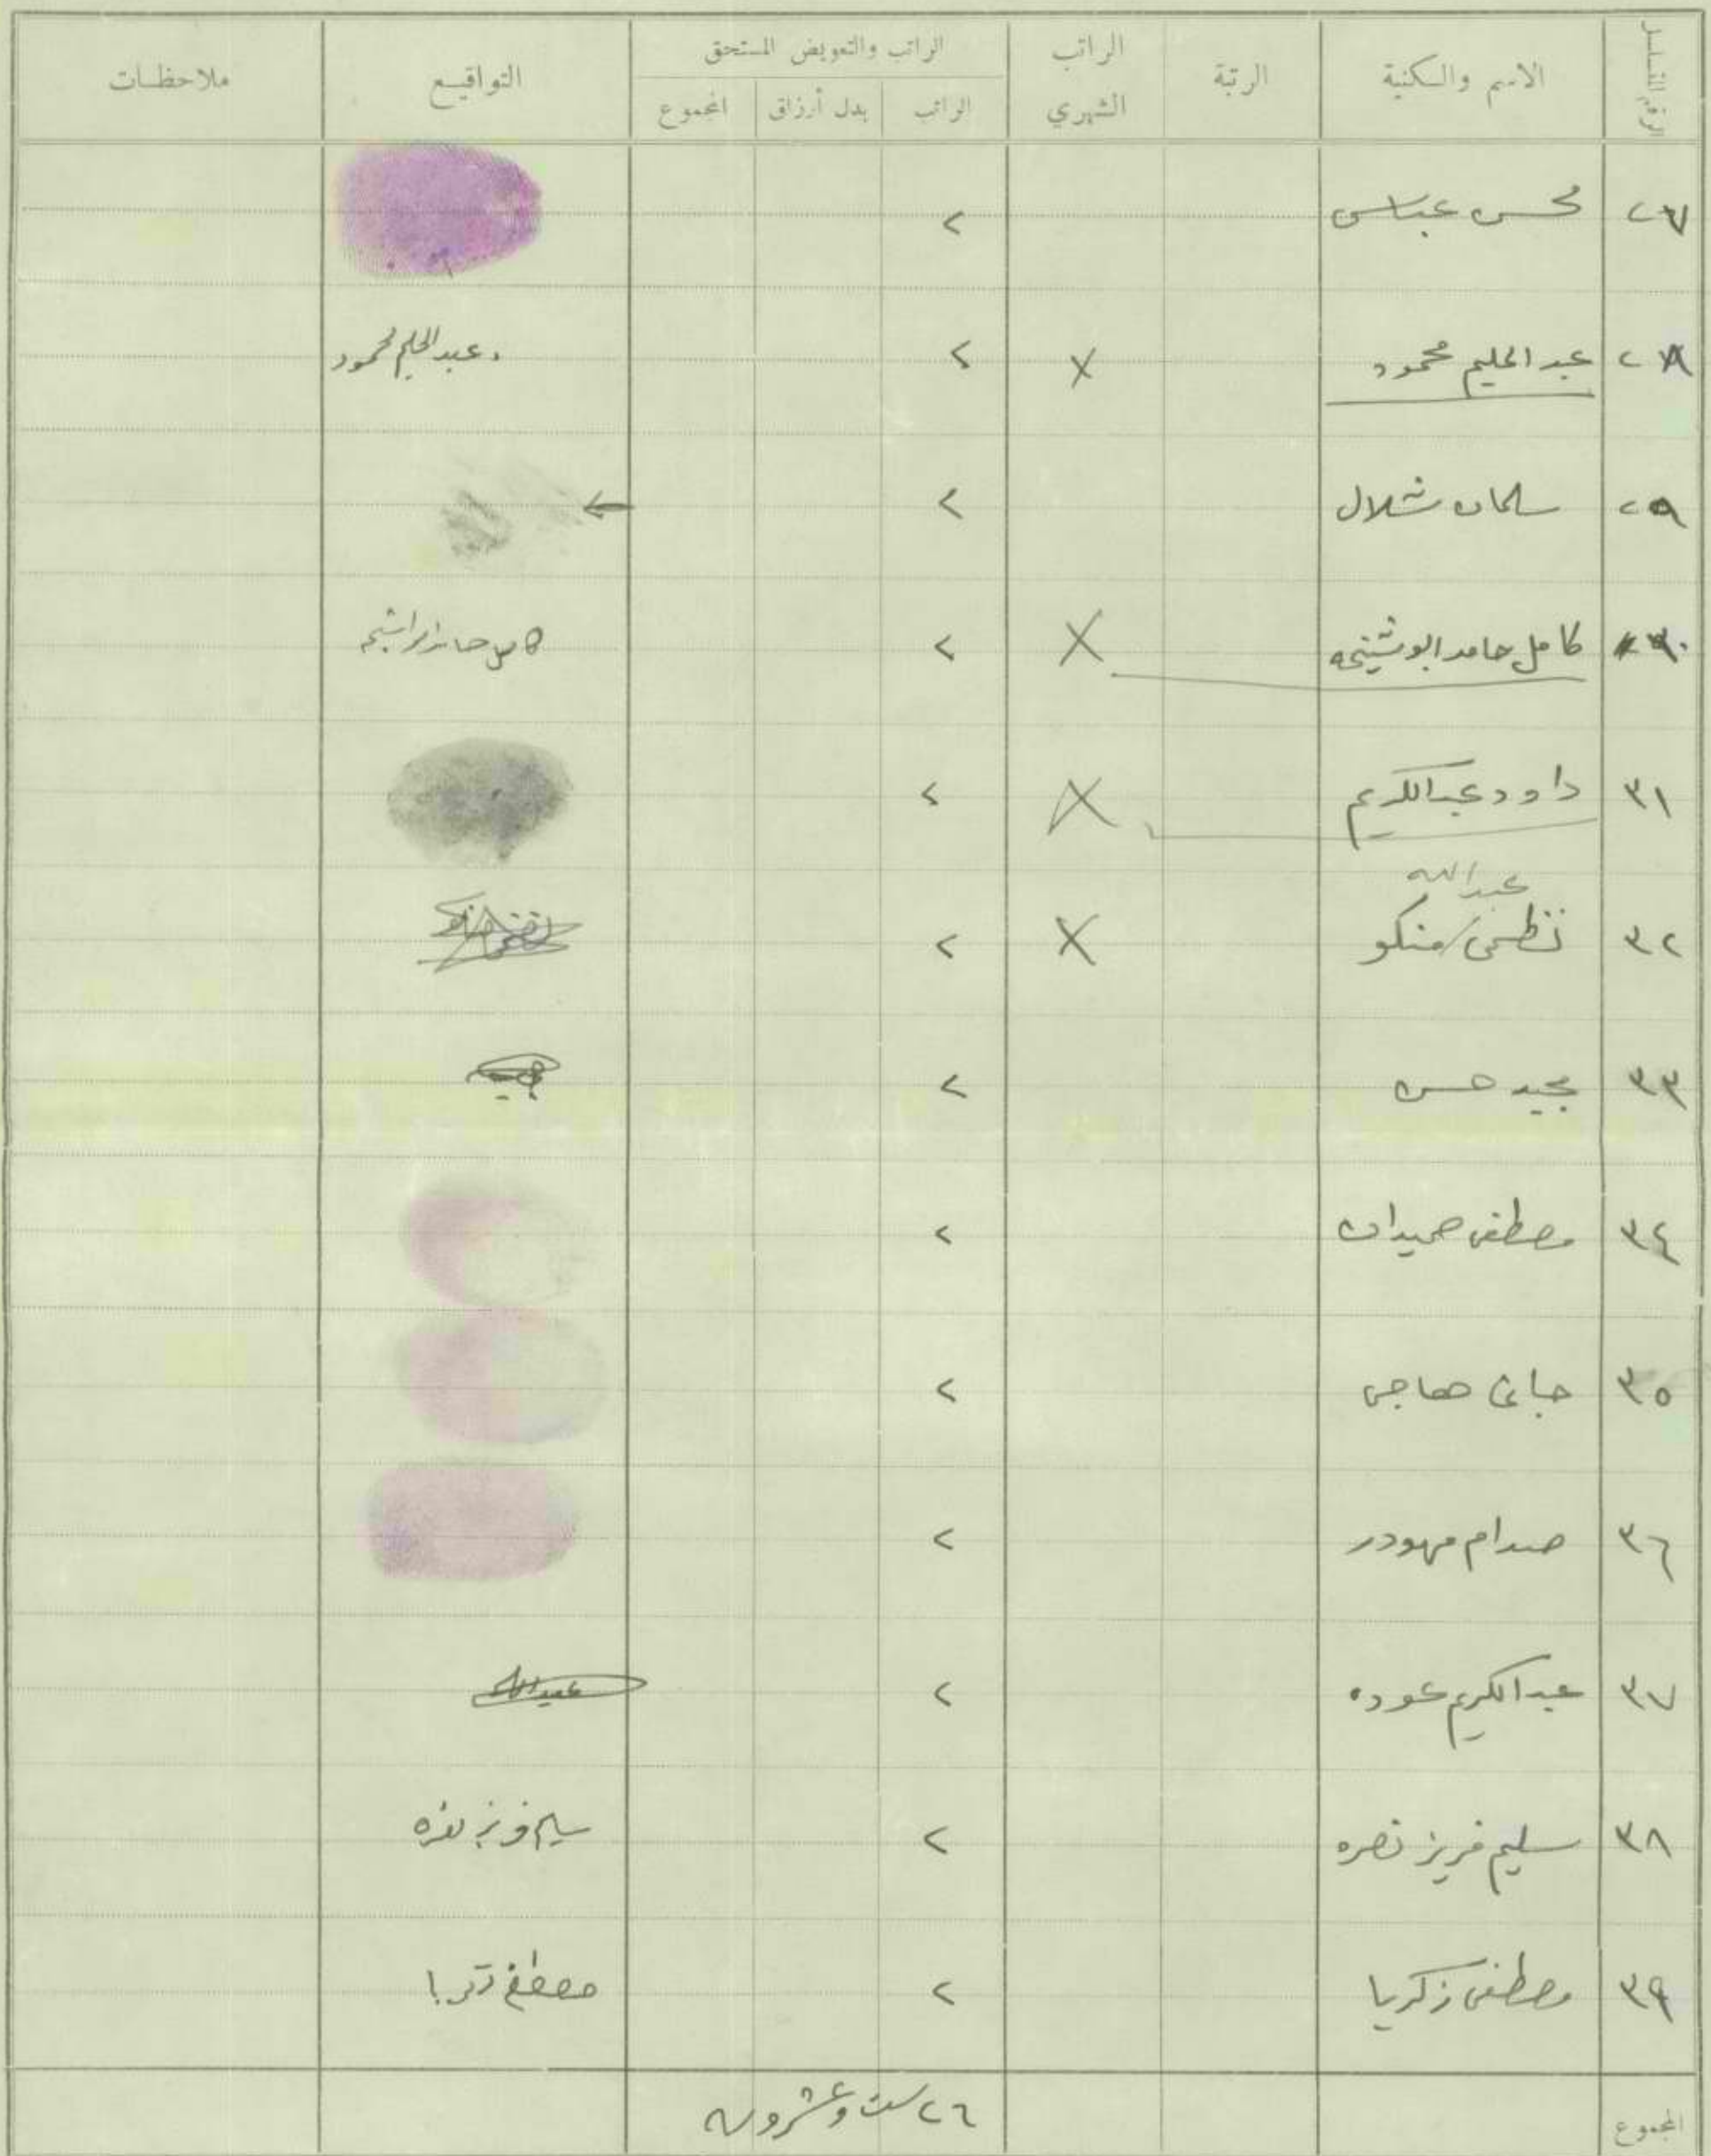 الرقم المتسلسل الاسم والكنية الرتبة الراتب الشهري الراتب والتعويض المستحق التواقيع ملاحظات
الراتب بدل أرزاق المجموع
٢٧ محسن عباس ٢
٢٨ عبد الحليم محمود X ٢ عبد الحليم محمود
٢٩ سلمان شلال ٢
٣٠ كامل حامد ابو شيخه X ٢ كامل حامد
٣١ داود عبد الكريم X ٢
عبد الله
٣٢ نظمي / منكو X ٢
٣٣ مجيد حسن ٢
٣٤ مصطفى حميدان ٢
٣٥ حاجي ٢
٣٦ صدام مهودر ٢
٣٧ عبد الكريم عوده ٢
٣٨ سليم فريز نصره ٢ سليم فريز نصره
٣٩ مصطفى زكريا ٢ مصطفى زكريا
المجموع ٢٦ ست وعشرون